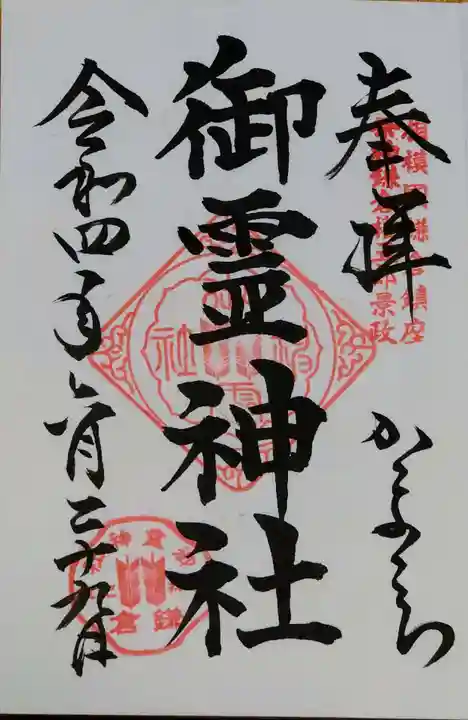 奉拝
相模国鎌倉鎮座
鎌倉権五郎景政
かまくら
御霊神社
令和四年六月二十九日
鎌倉